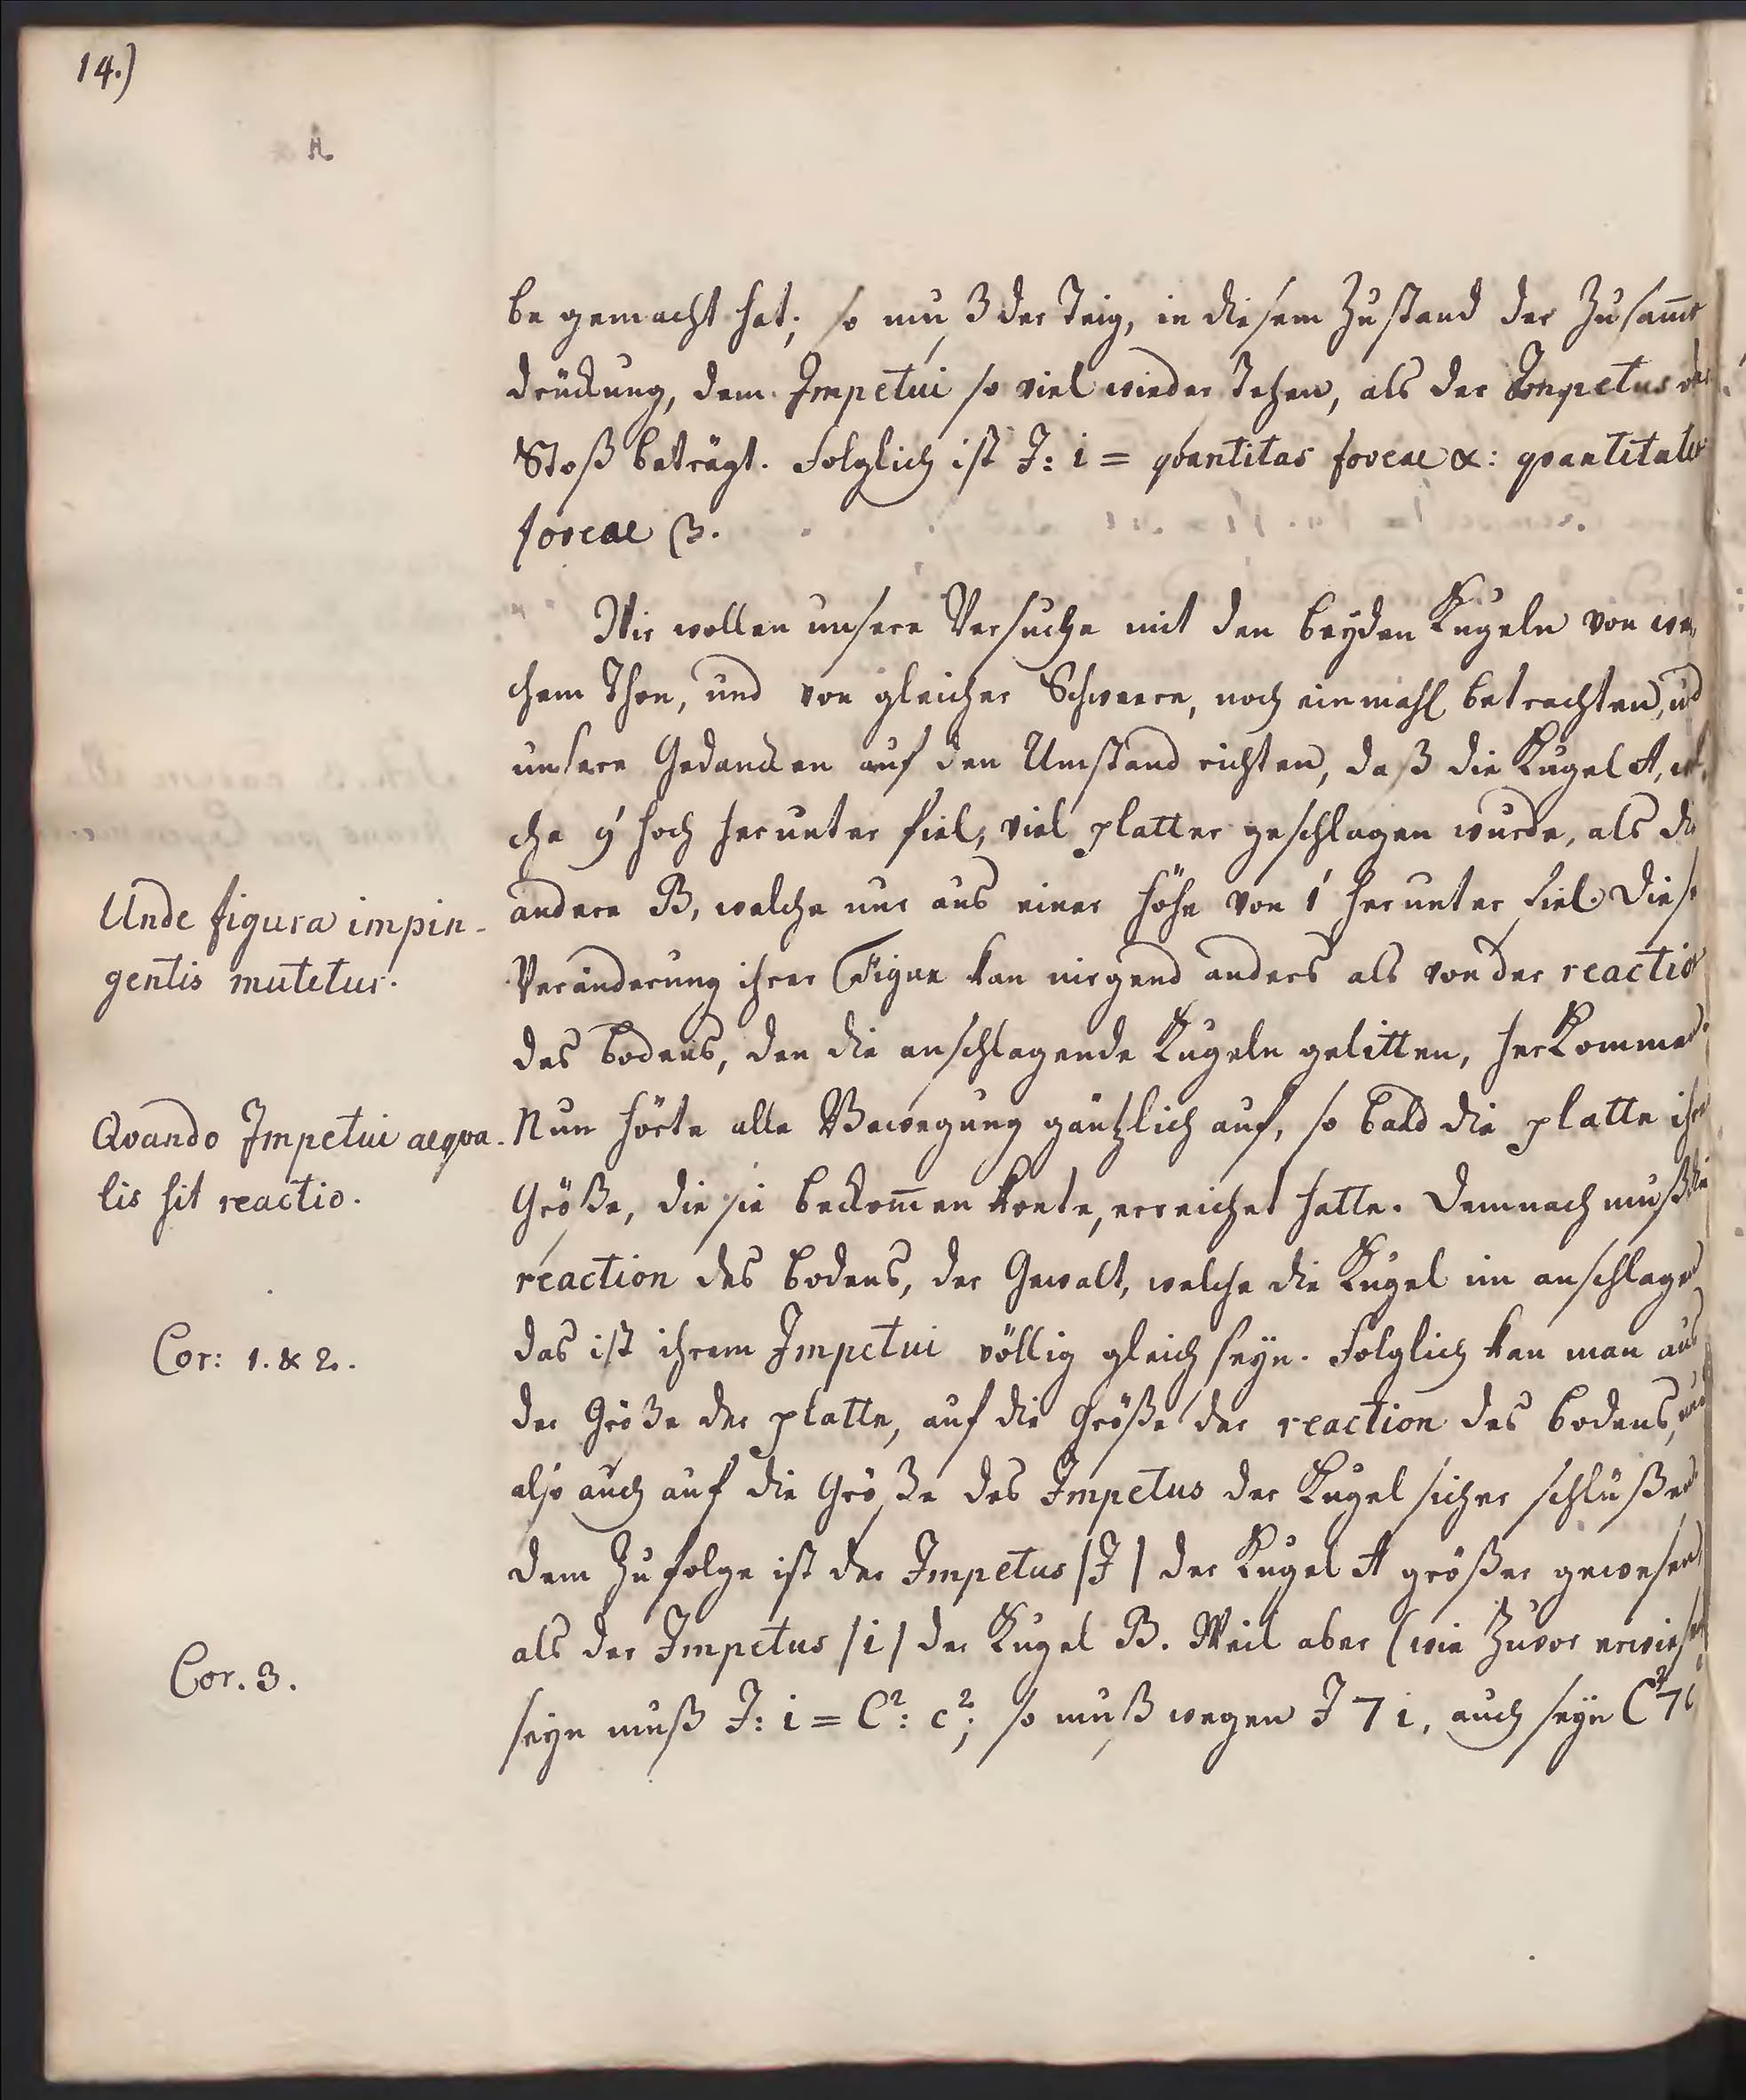 14.)
be gemacht hat; so muß der Teig, in diesem Zustand der Zusam̄e
drückung, dem Impetui so viel wieder stehen, als der Impetus der
Stoß beträgt. Folglich ist I: i = qvantitas foveae α: qvantitatem
foveae β.
Wir wollen unsere Versuche mit den beyden Kugeln von wei
chem Thon, und von gleicher Schweere, noch einmahl betrachten, und
unsere Gedancken auf den Umstand richten, daß die Kugel A, wel
che 9' hoch herunter fiel, viel platter geschlagen wurde, als die
andere B, welche nur aus einer Höhe von 1' herunter fiel. Diese
Unde figura impin-
gentis mutetur.
Veränderung ihrer Figur kan nirgend anders als von der reactio
des Bodens, den die anschlagende Kugeln gelitten, herkommen.
Qvando Impetui aeqva-
lis sit reactio.
Nun hörte alle Bewegung gäntzlich auf, so bald die platte ihre
Größe, die sie beckom̄en konte, erreichet hatte. Demnach muß die
reaction des Bodens, der Gewalt, welche die Kugel im anschlagen
Cor: 1. & 2.
das ist ihrem Impetui völlig gleich seyn. Folglich kan man aus
der Größe der platte, auf die Größe der reaction des Bodens, und
also auch auf die Größe des Impetus der Kugel sicher schlüßen
dem zu folge ist der Impetus /I/ der Kugel A größer gewesen
als der Impetus /i/ der Kugel B. Weil aber (wie zuvor erwiesen
Cor. 3.
seyn muß I: i = C²: c²; so muß wegen I 7 i, auch seyn C² 7 c